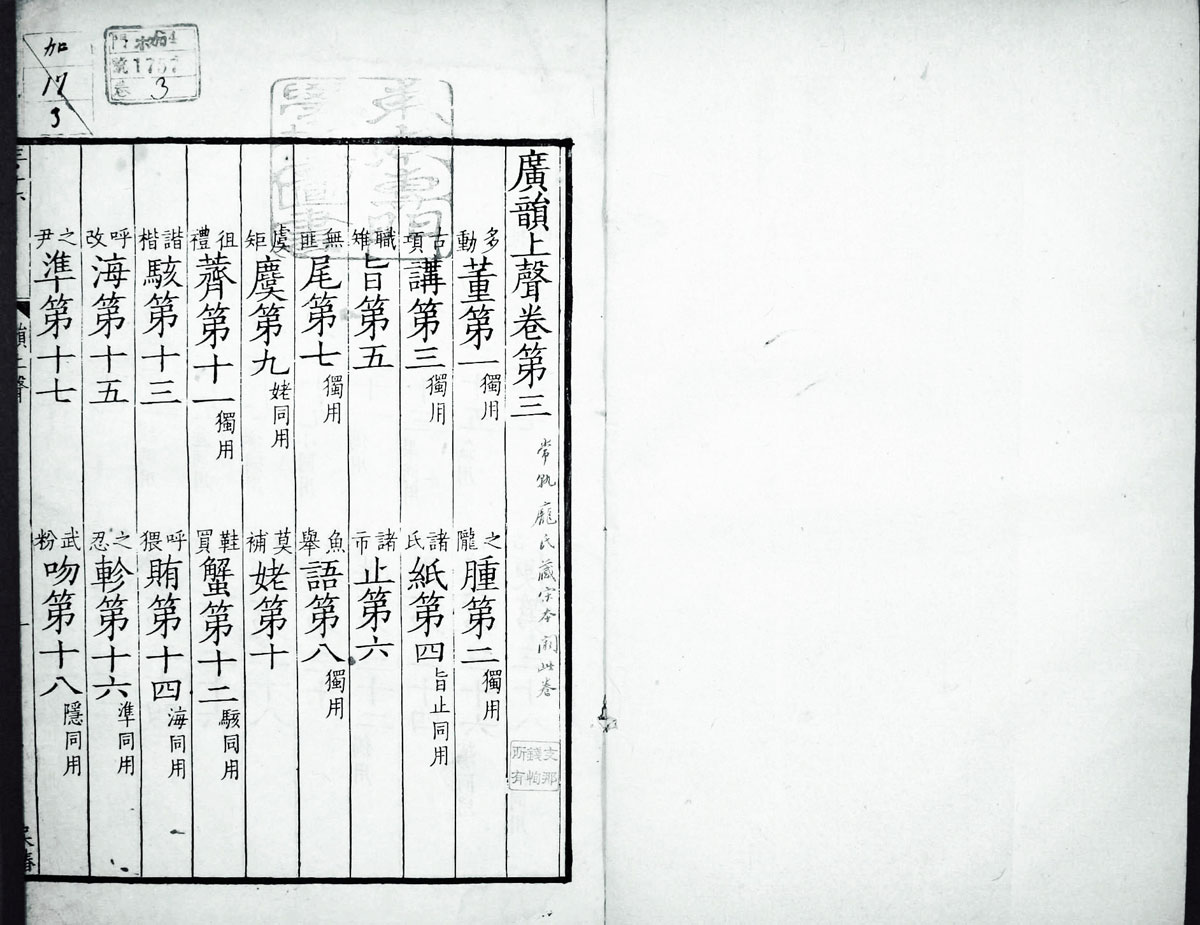 廣韻上聲卷第三
常熟龐氏藏宋本闕此卷
多動董第一獨用
之隴腫第二獨用
古項講第三獨用
諸氏紙第四旨止同用
職雉旨第五
諸市止第六
無匪尾第七獨用
魚舉語第八獨用
虞矩麌第九姥同用
莫補姥第十
徂禮薺第十一獨用
鞋買蟹第十二駭同用
諧楷駭第十三
呼猥賄第十四海同用
呼改海第十五
之忍軫第十六準同用
之尹準第十七
武粉吻第十八隱同用
加
17
3
1757
3